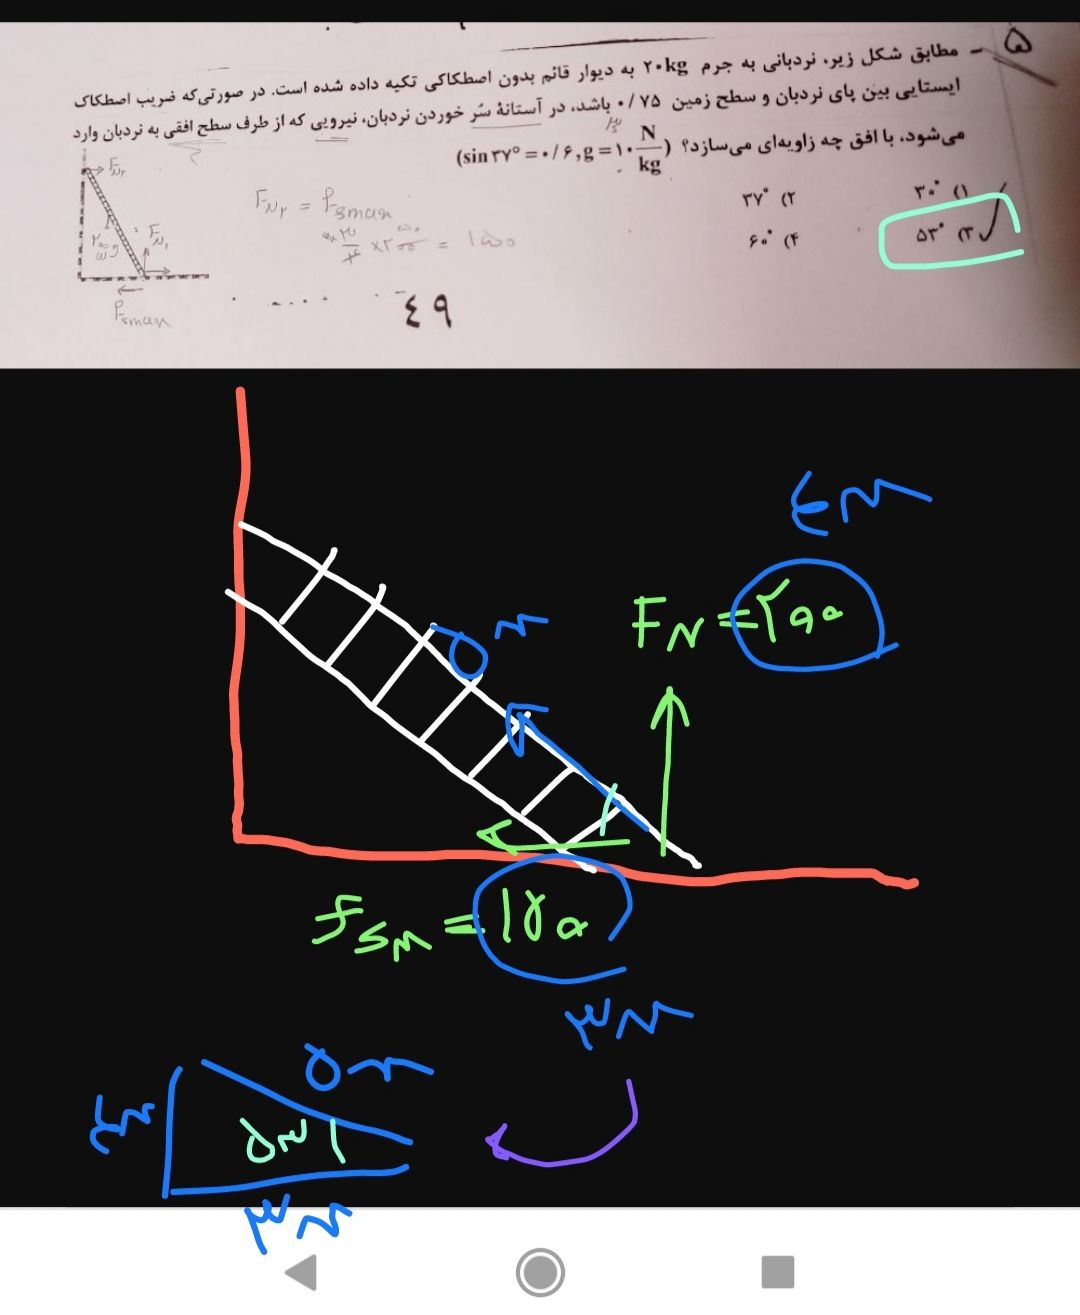 ۵ - مطابق شکل زیر، نردبانی به جرم ۲۰kg به دیوار قائم بدون اصطکاکی تکیه داده شده است. در صورتی‌که ضریب اصطکاک
ایستایی بین پای نردبان و سطح زمین ۰/۷۵ باشد، در آستانهٔ سُر خوردن نردبان، نیرویی که از طرف سطح افقی به نردبان وارد
می‌شود، با افق چه زاویه‌ای می‌سازد؟ (sin ۳۷° = ۰/۶, g = ۱۰ N/kg)
۱) ۳۰°
۲) ۳۷°
۳) ۵۳°
۴) ۶۰°
F_N۲ = f_smax
= ۱۵۰
F_N۲
F_N۱
f_smax
٤٩
٤m
F_N = ۲۰۰
۵m
f_sm = ۱۵۰
۳m
۵m
٤m
۵۳
۳m